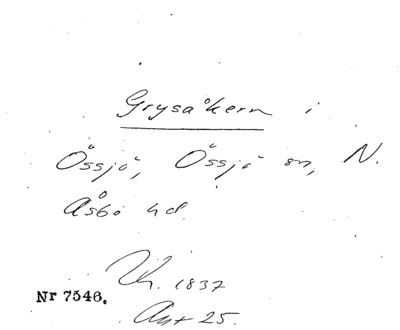 Grysåkern i
Össjö, Össjö sn, N.
Åsbo hd.
Uh. 1837
Akt 25.
Nr 7546.